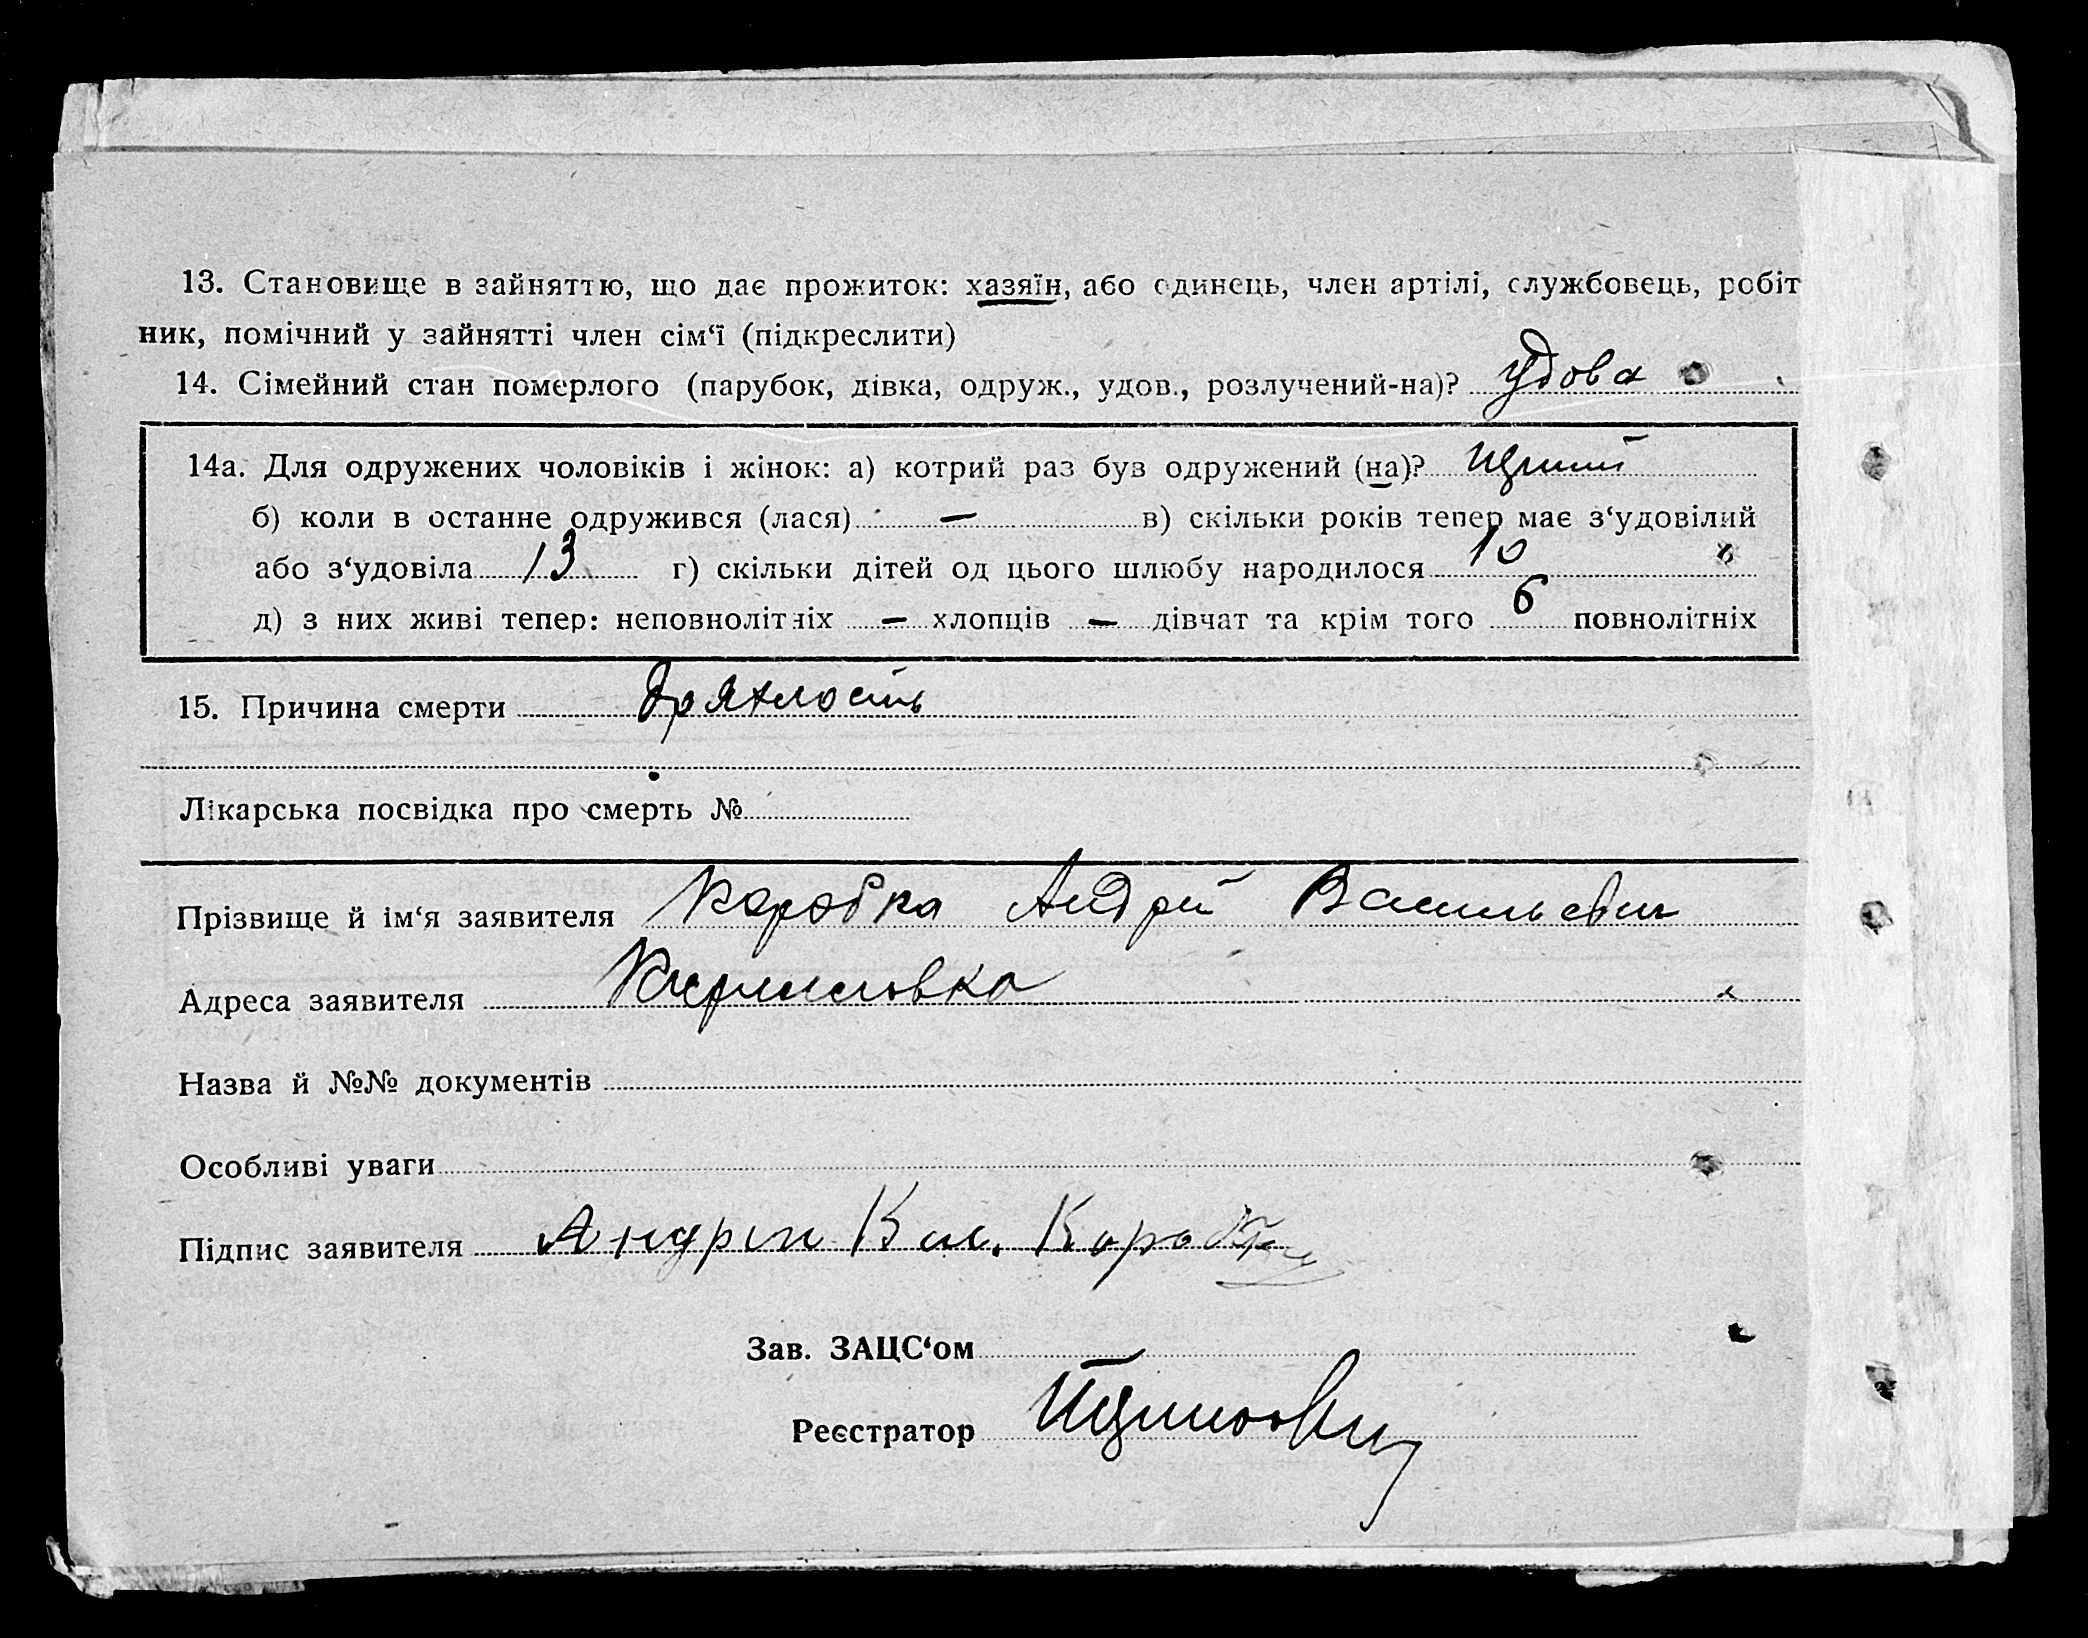 13. Становище в зайняттю, що дає прожиток: хазяїн, або одинець, член артілі, службовець, робіт
ник, помічний у зайнятті член сім‘ї (підкреслити)
14. Сімейний стан померлого (парубок, дівка, одруж., удов., розлучений-на)? удова
14а. Для одружених чоловіків і жінок: а) котрий раз був одружений (на)?
б) коли в останне одружився (лася) — в) скільки років тепер має з‘удовілий
або з‘удовіла 13 г) скільки дітей од цього шлюбу народилося 10
д) з них живі тепер: неповнолітніх — хлопців — дівчат та крім того 6 повнолітніх
15. Причина смерти дряхлость
Лікарська посвідка про смерть №
Прізвище й ім‘я заявителя Коробка Андрій Васильевич
Адреса заявителя
Назва й №№ документів
Особливі уваги
Підпис заявителя Андрій Вас. Коробка
Зав. ЗАЦС‘ом
Реєстратор